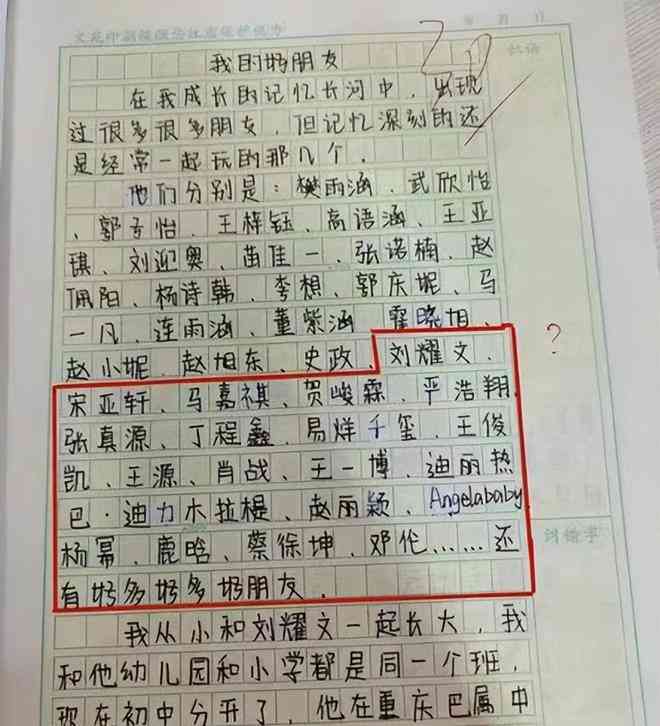 我的好朋友
在我成长的记忆长河中，出现
过很多很多朋友，但记忆深刻的还
是经常一起玩的那几个．
他们分别是：樊雨涵、武欣怡
、郭子怡、王梓钰、高语涵、王亚
琪、刘迎奥、苗佳一、张诺楠、赵
佩阳、杨诗韩、李想、郭庆妮、马
一凡、连雨涵、董紫涵、霍晓旭、
赵小妮、赵旭东、史政、刘耀文、
？
宋亚轩、马嘉祺、贺峻霖、严浩翔、
张真源、丁程鑫、易烊千玺、王俊
凯、王源、肖战、王一博、迪丽热
巴·迪力木拉提、赵丽颖、Angelababy、
杨幂、鹿晗、蔡徐坤、邓伦……还
有好多好多好朋友．
我从小和刘耀文一起长大，我
和他幼儿园和小学都是同一个班，
现在初中分开了，他在重庆巴属中